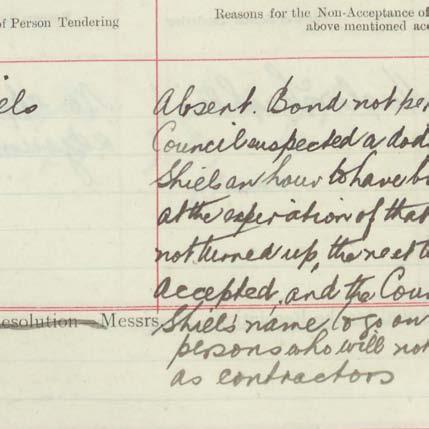 of Person Tendering
Reasons for the Non-Acceptance of
above mentioned
iels
Absent. Bond not per
Council suspected a dod
Shiels an hour to have b
at the expiration of that
not turned up, the next t
accepted, and the Coun
esolution Messrs.
Shiels' name to go on
persons who will not
as contractors